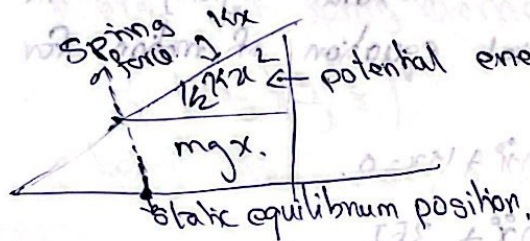 Spring
force
Kx
½Kx² ← potential ene
mgx.
Static equilibrium position.